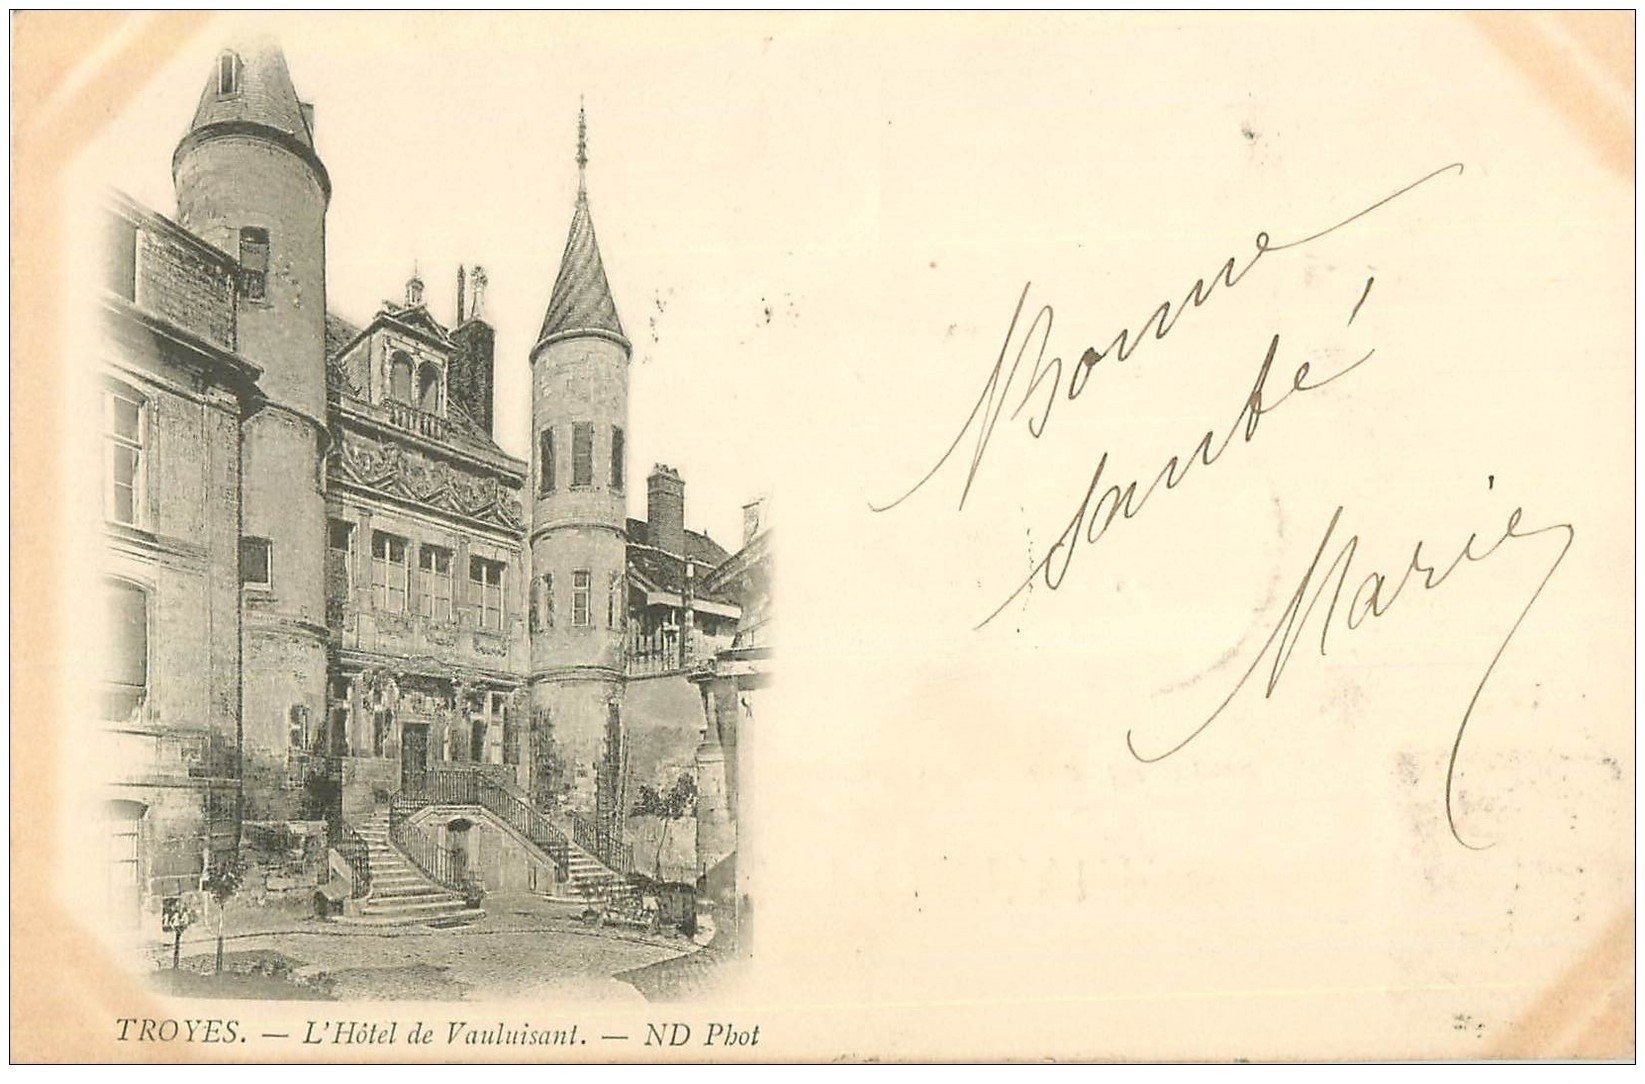 Bonne
Santé
Marie
144
TROYES. — L'Hôtel de Vauluisant. — ND Phot